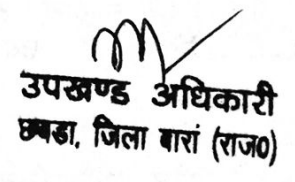 उपखण्ड अधिकारी
छबडा, जिला बारां (राज०)